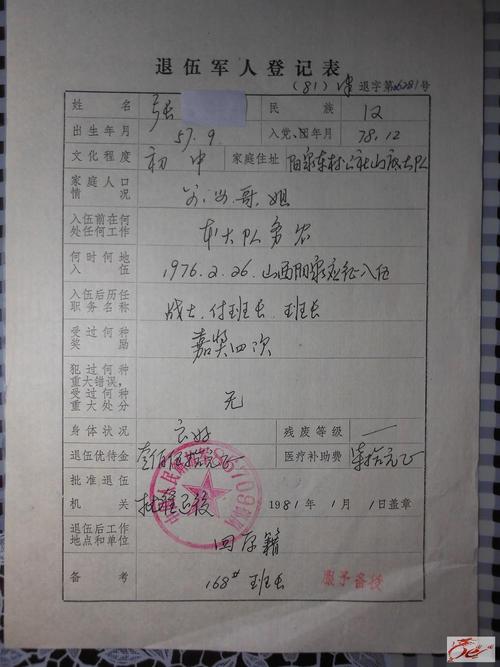 退伍军人登记表
(81) 退字第6281号
姓名 张 民族 汉
出生年月 57.9 入党、团年月 78.12
文化程度 初中 家庭住址 阳泉东村公社山底大队
家庭人口情况 父.母.哥.姐
入伍前在何处任何工作 本大队务农
何时何地入伍 1976.2.26.山西阳泉应征入伍
入伍后历任职务名称 战士.付班长.班长
受过何种奖励 嘉奖四次
犯过何种重大错误,受过何种重大处分 无
身体状况 良好 残废等级 一
退伍优待金 壹佰伍拾元正 医疗补助费 柒拾元正
批准退伍机关 批准 1981年1月1日盖章
中国人民解放军
退伍后工作地点和单位 回原籍
备考 168# 班长 服予备役